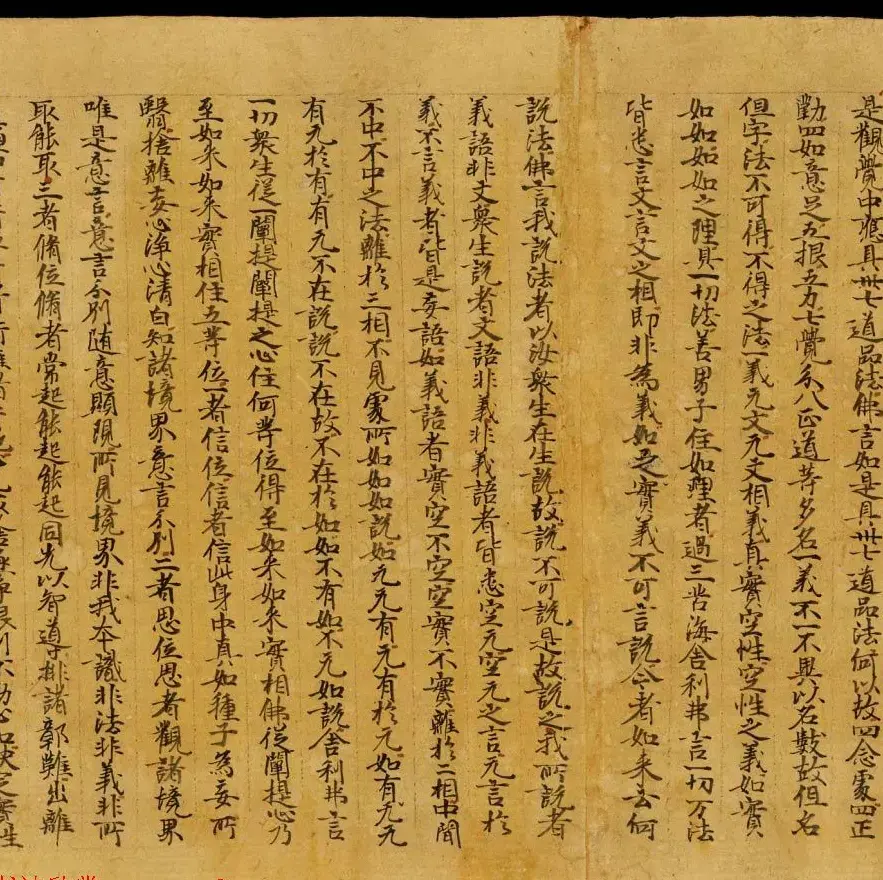 是觀覺中應具卅七道品法佛言如是具卅七道品法何以故四念處四正
勤四如意足五根五力七覺分八正道等多名一義不一不異以名數故但名
但字法不可得不得之法一義无文无文相義真實空性空性之義如實
如如如如之理具一切法善男子住如理者過三苦海舍利弗言一切万法
皆悉言文言文之相即非為義如之實義不可言說今者如來云何
說法佛言我說法者以汝衆生在生說故說不可說是故說之我所說者
義語非文衆生說者文語非義非義語者皆悉空无空无之言无言於
義不言義者皆是妄語如義語者實空不空空實不實離於二相中間
不中不中之法離於三相不見處所如如如說如无无有无有於无如有无无
有无於有有无不在說說不在故不在於如如不有如不无如說舍利弗言
一切衆生從一闡提闡提之心住何等位得至如來如來實相佛從闡提心乃
至如來如來實相住五等位一者信位信者信此身中真如種子為妄所
翳捨離妄心淨心清白知諸境界意言分別二者思位思者觀諸境界
唯是意言意言分別隨意顯現所見境界非我本識非法非義非所
取能取三者脩位脩者常起能起能起同先以智導排諸鄣難出離